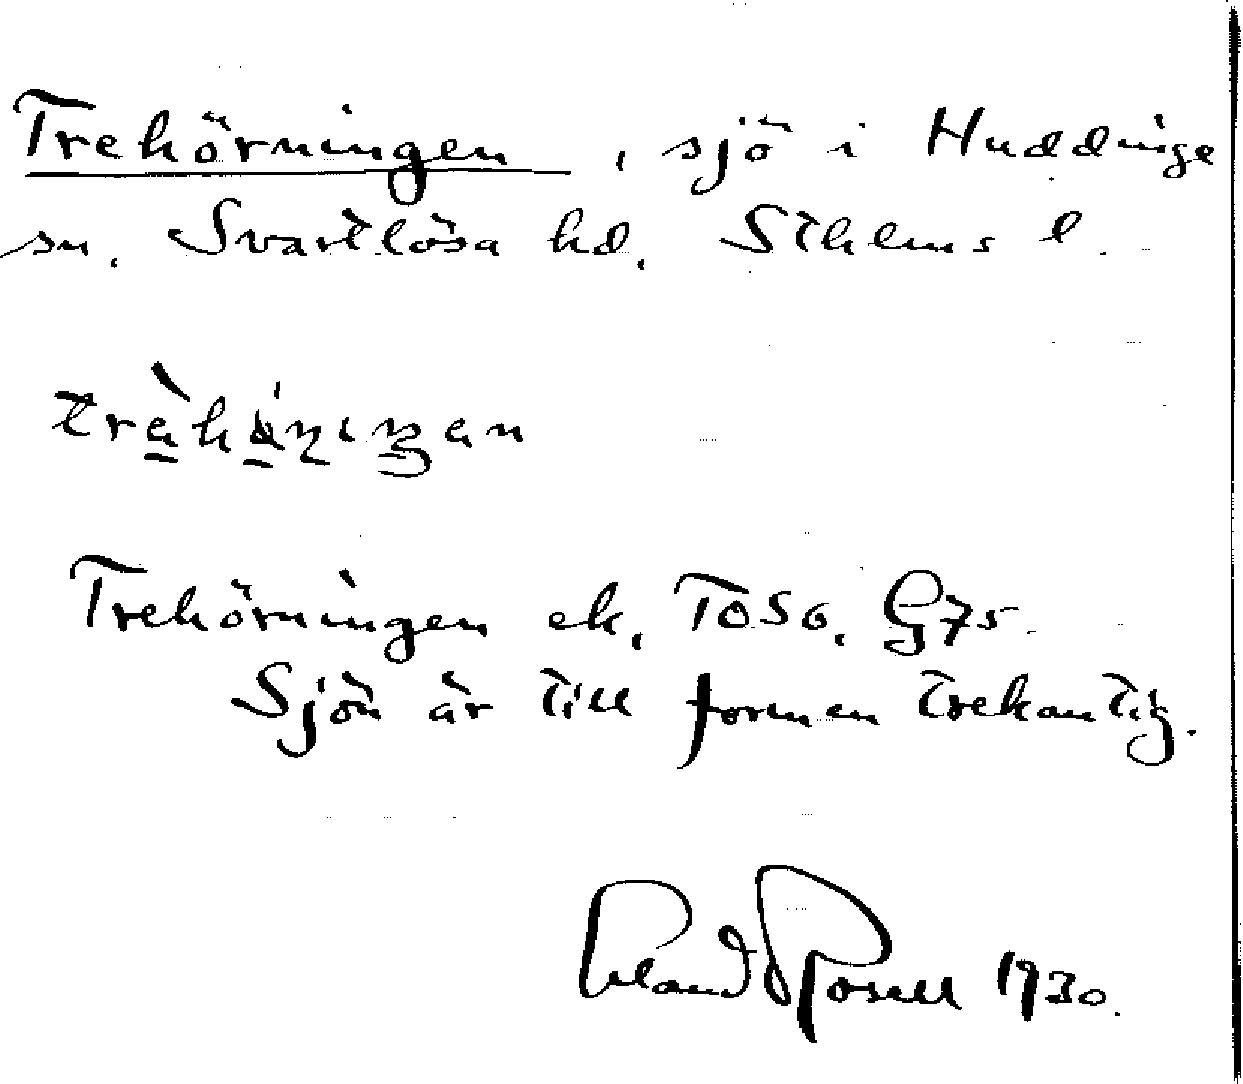 Trehörningen, sjö i Huddinge
sn. Svartlösa hd. Sthlms l.
Trehörningen ek. TOSö. G75.
Sjön är till formen trekantig.
Erland Rosell 1930.